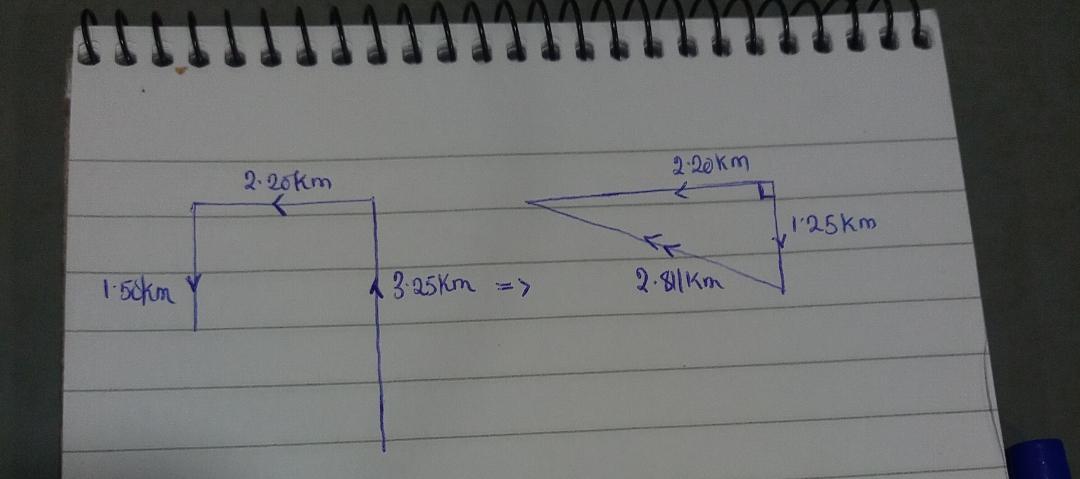 2.20km
1.50km
3.25km =>
2.20km
1.25km
2.811km